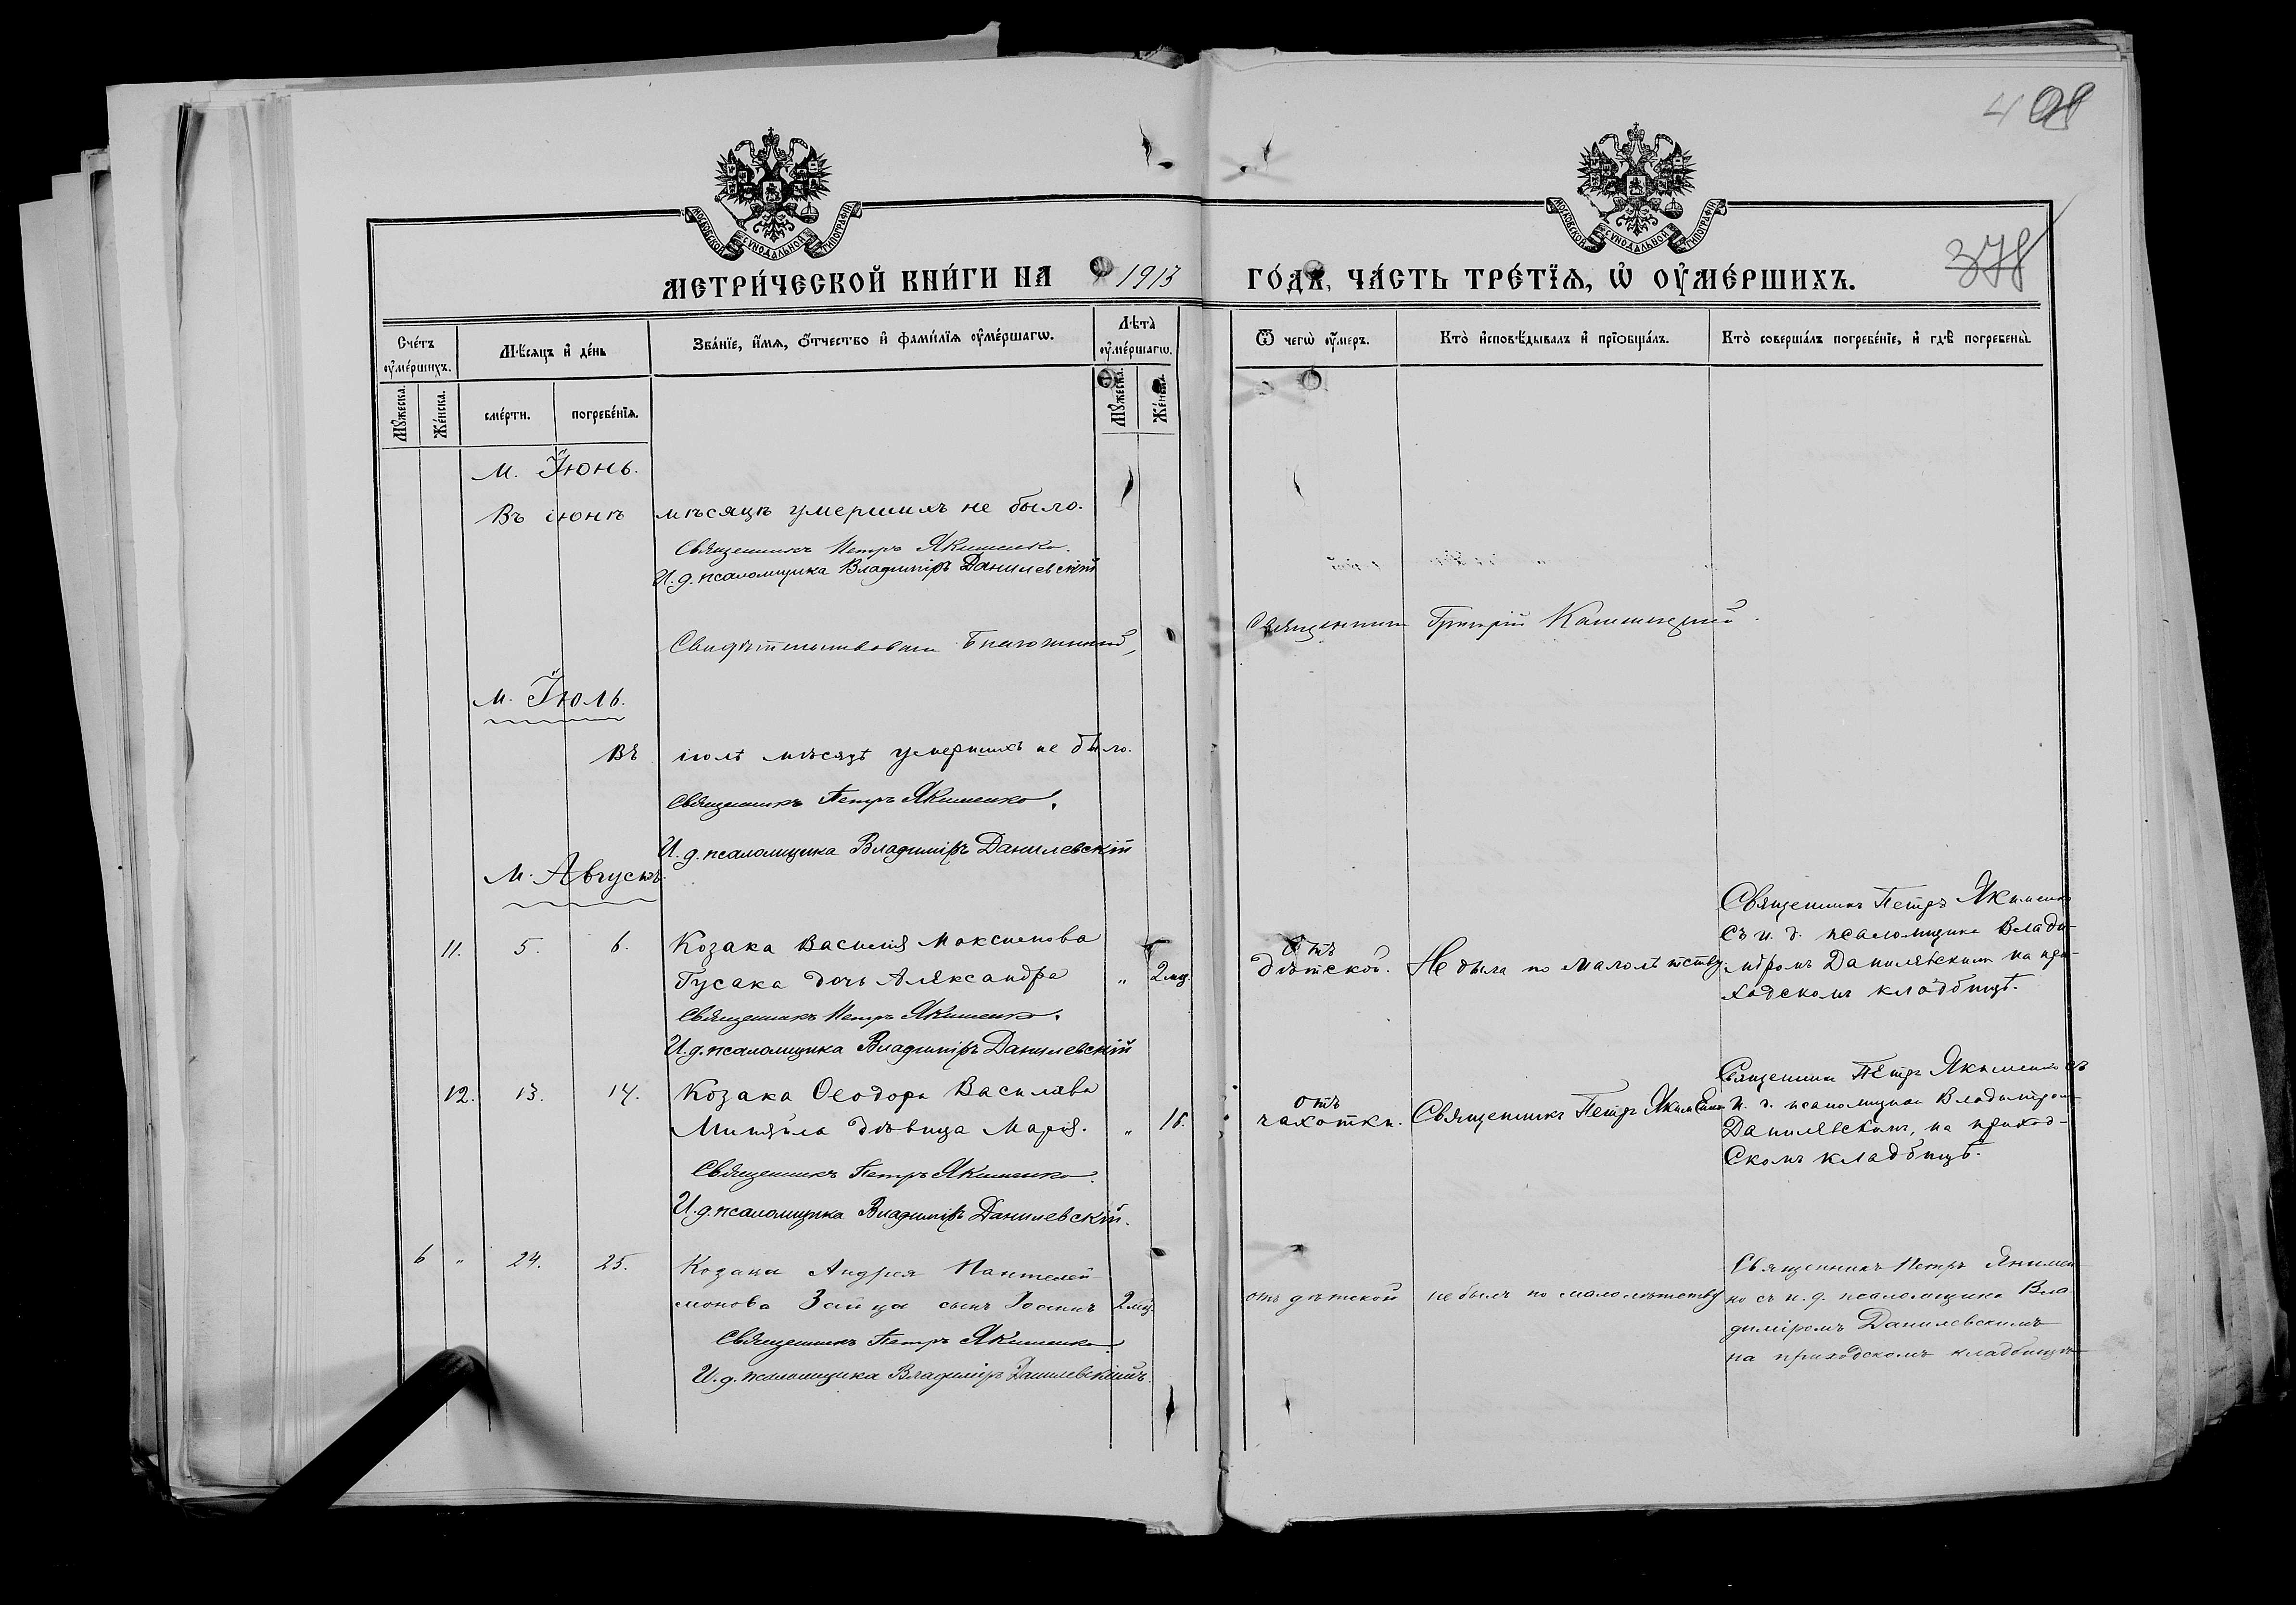 408
МОСКОВСКОЙ СѴНОДАЛЬНОЙ ТИПОГРАФІИ
МОСКОВСКОЙ СѴНОДАЛЬНОЙ ТИПОГРАФІИ
378
МЕТРИ́ЧЕСКОЙ КНИ́ГИ НА 1913 ГО́ДЪ, ЧА́СТЬ ТРЕ́ТЇѦ, Ѡ҆ ОУ҆МЕ́РШИХЪ.
Сче́тъ оу҆ме́ршихъ.
Мѣ́сяцъ и҆ де́нь
Зва́нїе, и҆́мѧ, ѻ҆́тчество и҆ фами́лїѧ оу҆ме́ршагѡ.
Лѣта̀ оу҆ме́ршагѡ.
Ѿ чегѡ̀ оу҆́меръ.
Кто̀ и҆сповѣ́дывалъ и҆ прїѡбща́лъ.
Кто̀ соверша́лъ погребе́нїе, и҆ гдѣ̀ погребены̀.
Мꙋ́жеска.
Же́нска.
сме́рти.
погребе́нїѧ.
Мꙋ́жеска.
Же́нска.
м. Іюнь.
Въ іюнѣ мѣсяцѣ умершихъ не было.
Священникъ Петръ Якименко.
И. д. псаломщика Владиміръ Данилевскій
Свидѣтельствовалъ Благочинный, Священникъ Григорій
м. Іюль.
Въ іюлѣ мѣсяцѣ умершихъ не было.
Священникъ Петръ Якименко.
И. д. псаломщика Владиміръ Данилевскій
м. Августъ.
11. 5. 6. Козака Василія Максимова
Гусака дочь Александра „ 2 мц.
Священникъ Петръ Якименко.
И. д. псаломщика Владиміръ Данилевскій
Отъ
дѣтской.
Не была по малолѣтству.
Священникъ Петръ Якименко
съ и. д. псаломщика Влади-
міромъ Данилевскимъ на при-
ходскомъ кладбищѣ.
12. 13. 14. Козака Ѳеодора Василіева
дѣвица Марія. „ 16.
Священникъ Петръ Якименко.
И. д. псаломщика Владиміръ Данилевскій.
отъ
чахотки.
Священникъ Петръ Якименко
Священникъ Петръ Якименко съ
и. д. псаломщика Владиміромъ
Данилевскимъ, на приход-
скомъ кладбищѣ.
6 „ 24. 25. Козака Андрея Пантелей-
монова Зайца сынъ Іоаннъ 2 мц.
Священникъ Петръ Якименко.
И. д. псаломщика Владиміръ Данилевскій.
отъ дѣтской
не былъ по малолѣтству
Священникъ Петръ Якимен-
ко съ и. д. псаломщика Вла-
диміромъ Данилевскимъ
на приходскомъ кладбищѣ